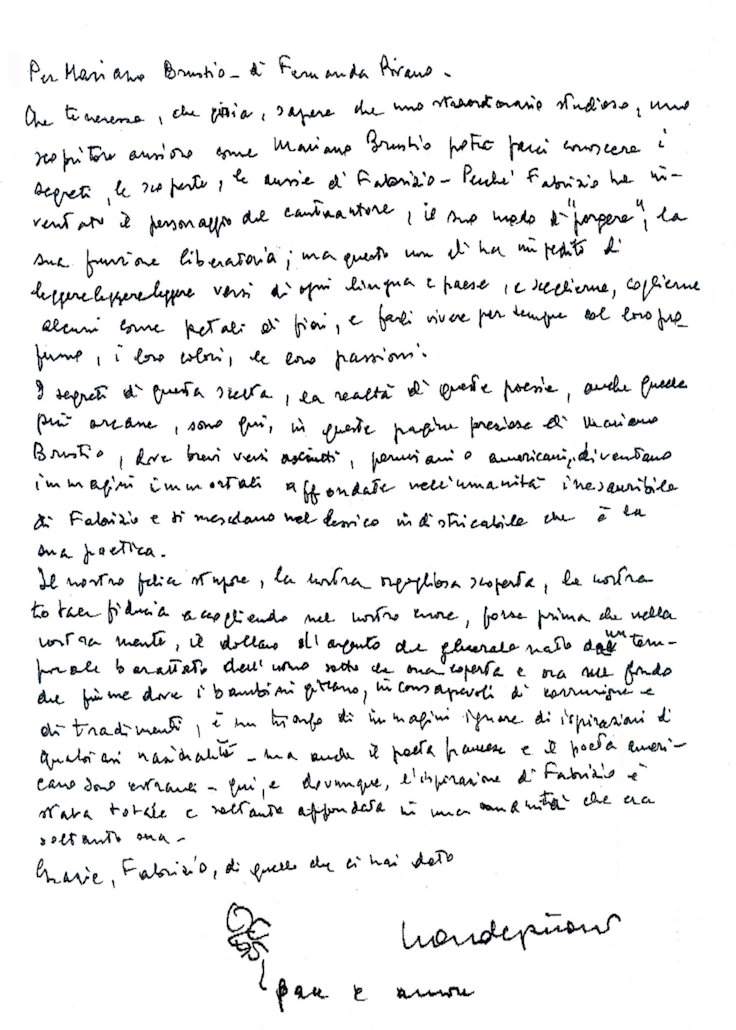 Per Mariano Brustio - di Fernanda Pivano -
Che tenerezza, che gioia, sapere che uno straordinario studioso, uno
scopritore ansioso come Mariano Brustio potrà farci conoscere i
segreti, le scoperte, le ansie di Fabrizio - Perché Fabrizio ha in-
ventato il personaggio del cantautore, il suo modo di "porgere", la
sua funzione liberatoria; ma questo non gli ha impedito di
leggere leggere leggere versi di ogni lingua e paese, e sceglierne, coglierne
alcuni come petali di fiori, e farli vivere per sempre col loro pro-
fumo, i loro colori, le loro passioni.
I segreti di questa scelta, la realtà di queste poesie, anche quelle
più arcane, sono qui, in queste pagine preziose di Mariano
Brustio, dove brevi versi, peruviani o americani, diventano
immagini immortali affondate nell'umanità inesauribile
di Fabrizio e si mescolano nel lessico indistricabile che è la
sua poetica.
Il nostro felice stupore, la nostra orgogliosa scoperta, la nostra
totale fiducia accogliendo nel nostro cuore, forse prima che nella
nostra mente, il dollaro d'argento del generale nato un tem-
porale barattato dell'uomo sotto la sua coperta e ora sul fondo
del fiume dove i bambini giocano, inconsapevoli di corruzione e
di tradimenti, è un trionfo di immagini ignare di ispirazioni di
qualsiasi nazionalità - ma anche il poeta francese e il poeta ameri-
cano sono estranei - qui, e dovunque, l'ispirazione di Fabrizio è
stata totale e soltanto affondata in una umanità che era
soltanto sua -
Grazie, Fabrizio, di quello che ci hai dato
Nanda Pivano
pace e amore